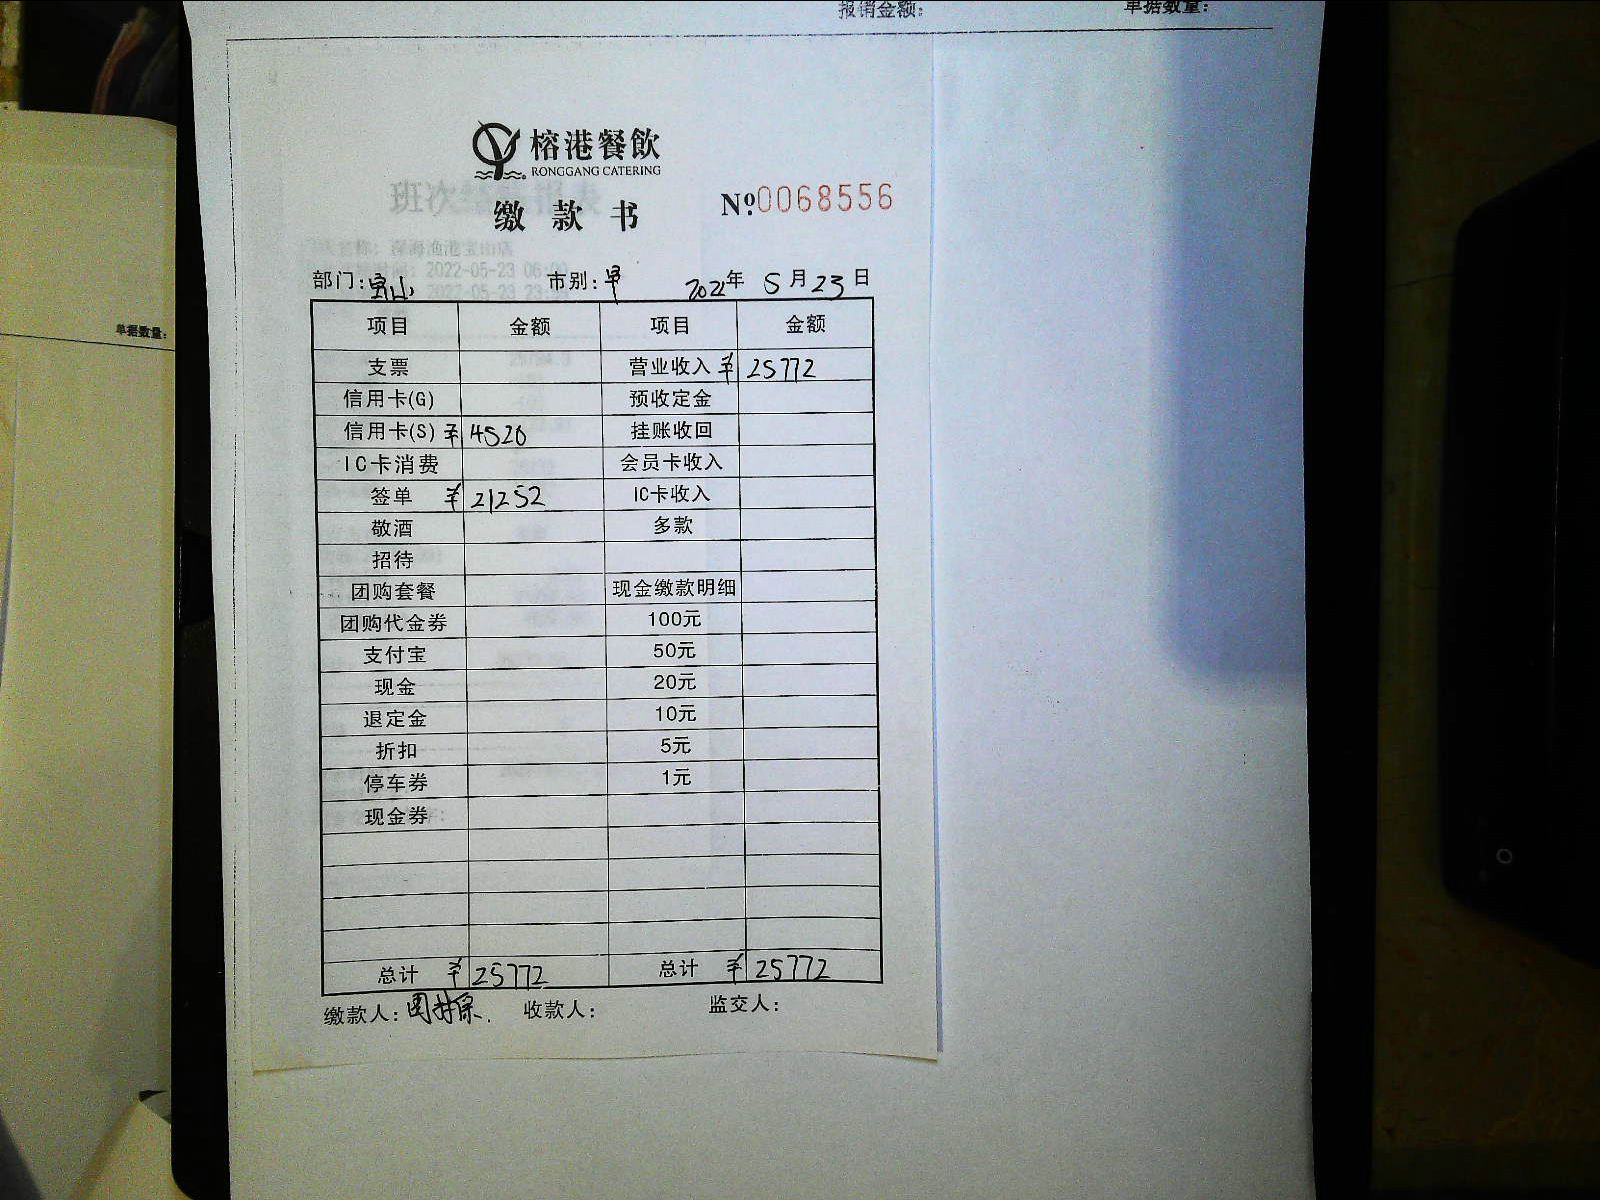 报销金额: 单据数量:
单据数量:
榕港餐飲
RONGGANG CATERING
缴款书 №0068556
部门:宝山 市别:早 2022年 5月23日
项目 金额 项目 金额
支票 营业收入 ¥ 25772
信用卡(G) 预收定金
信用卡(S) ¥ 4520 挂账收回
IC卡消费 会员卡收入
签单 ¥ 21252 IC卡收入
敬酒 多款
招待
团购套餐 现金缴款明细
团购代金券 100元
支付宝 50元
现金 20元
退定金 10元
折扣 5元
停车券 1元
现金券
总计 ¥ 25772 总计 ¥ 25772
缴款人: 收款人: 监交人: